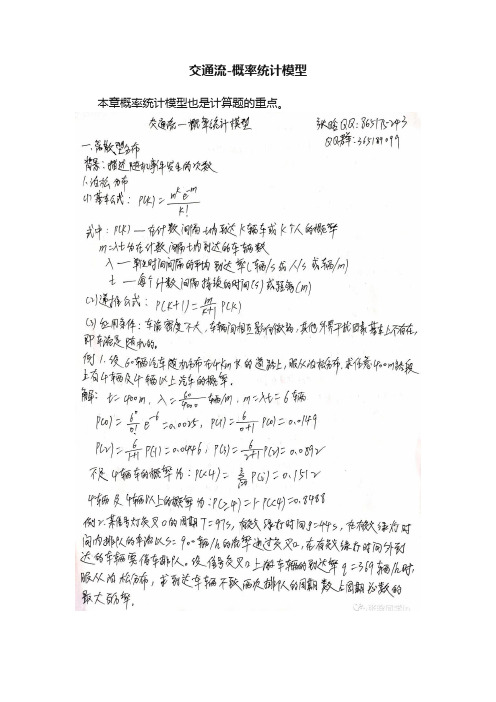 交通流-概率统计模型
本章概率统计模型也是计算题的重点。
交通流—概率统计模型
QQ: 865175243
QQ群: 365189099
一.离散型分布
背景:描述随机事件发生的次数
1.泊松分布
(1)基本公式: P(k)= m^k e^-m / k!
式中: P(k) — 在计数间隔t内到达k辆车或k个人的概率
m=λt为在计数间隔t内到达的车辆数
λ — 单位时间间隔的平均到达率(辆/s或人/s或辆/m)
t — 每个计数间隔持续的时间(s)或距离(m)
(2)递推公式: P(k+1)= m/k+1 P(k)
(3)应用条件:车流密度不大,车辆间相互影响微弱,其他外界干扰因素基本上不存在,
即车流是随机的。
例1.设60辆汽车随机分布在4km长的道路上,服从泊松分布,求任意400m路段
上有4辆及4辆以上汽车的概率。
解: t=400m, λ=60/4000 辆/m, m=λt=6辆
P(0)= 6^0/0! e^-6 =0.0025, P(1)= 6/0+1 P(0)=0.0149
P(2)= 6/1+1 P(1)=0.0446; P(3)= 6/2+1 P(2)=0.0892
不足4辆车的概率为: P(<4)= Σ P(i)=0.1512
4辆及4辆以上的概率为: P(≥4)=1-P(<4)=0.8488
例2.某信号灯交叉口的周期T=97s,有效绿灯时间g=44s,在有效绿灯时
间内排队的车流以S=900辆/h的流率通过交叉口,在有效绿灯时间外到
达的车辆要停车排队。设信号交叉口上游车辆的到达率q=369辆/h时,
服从泊松分布,求到达车辆不致两次排队的周期数占周期总数的
最大百分率。